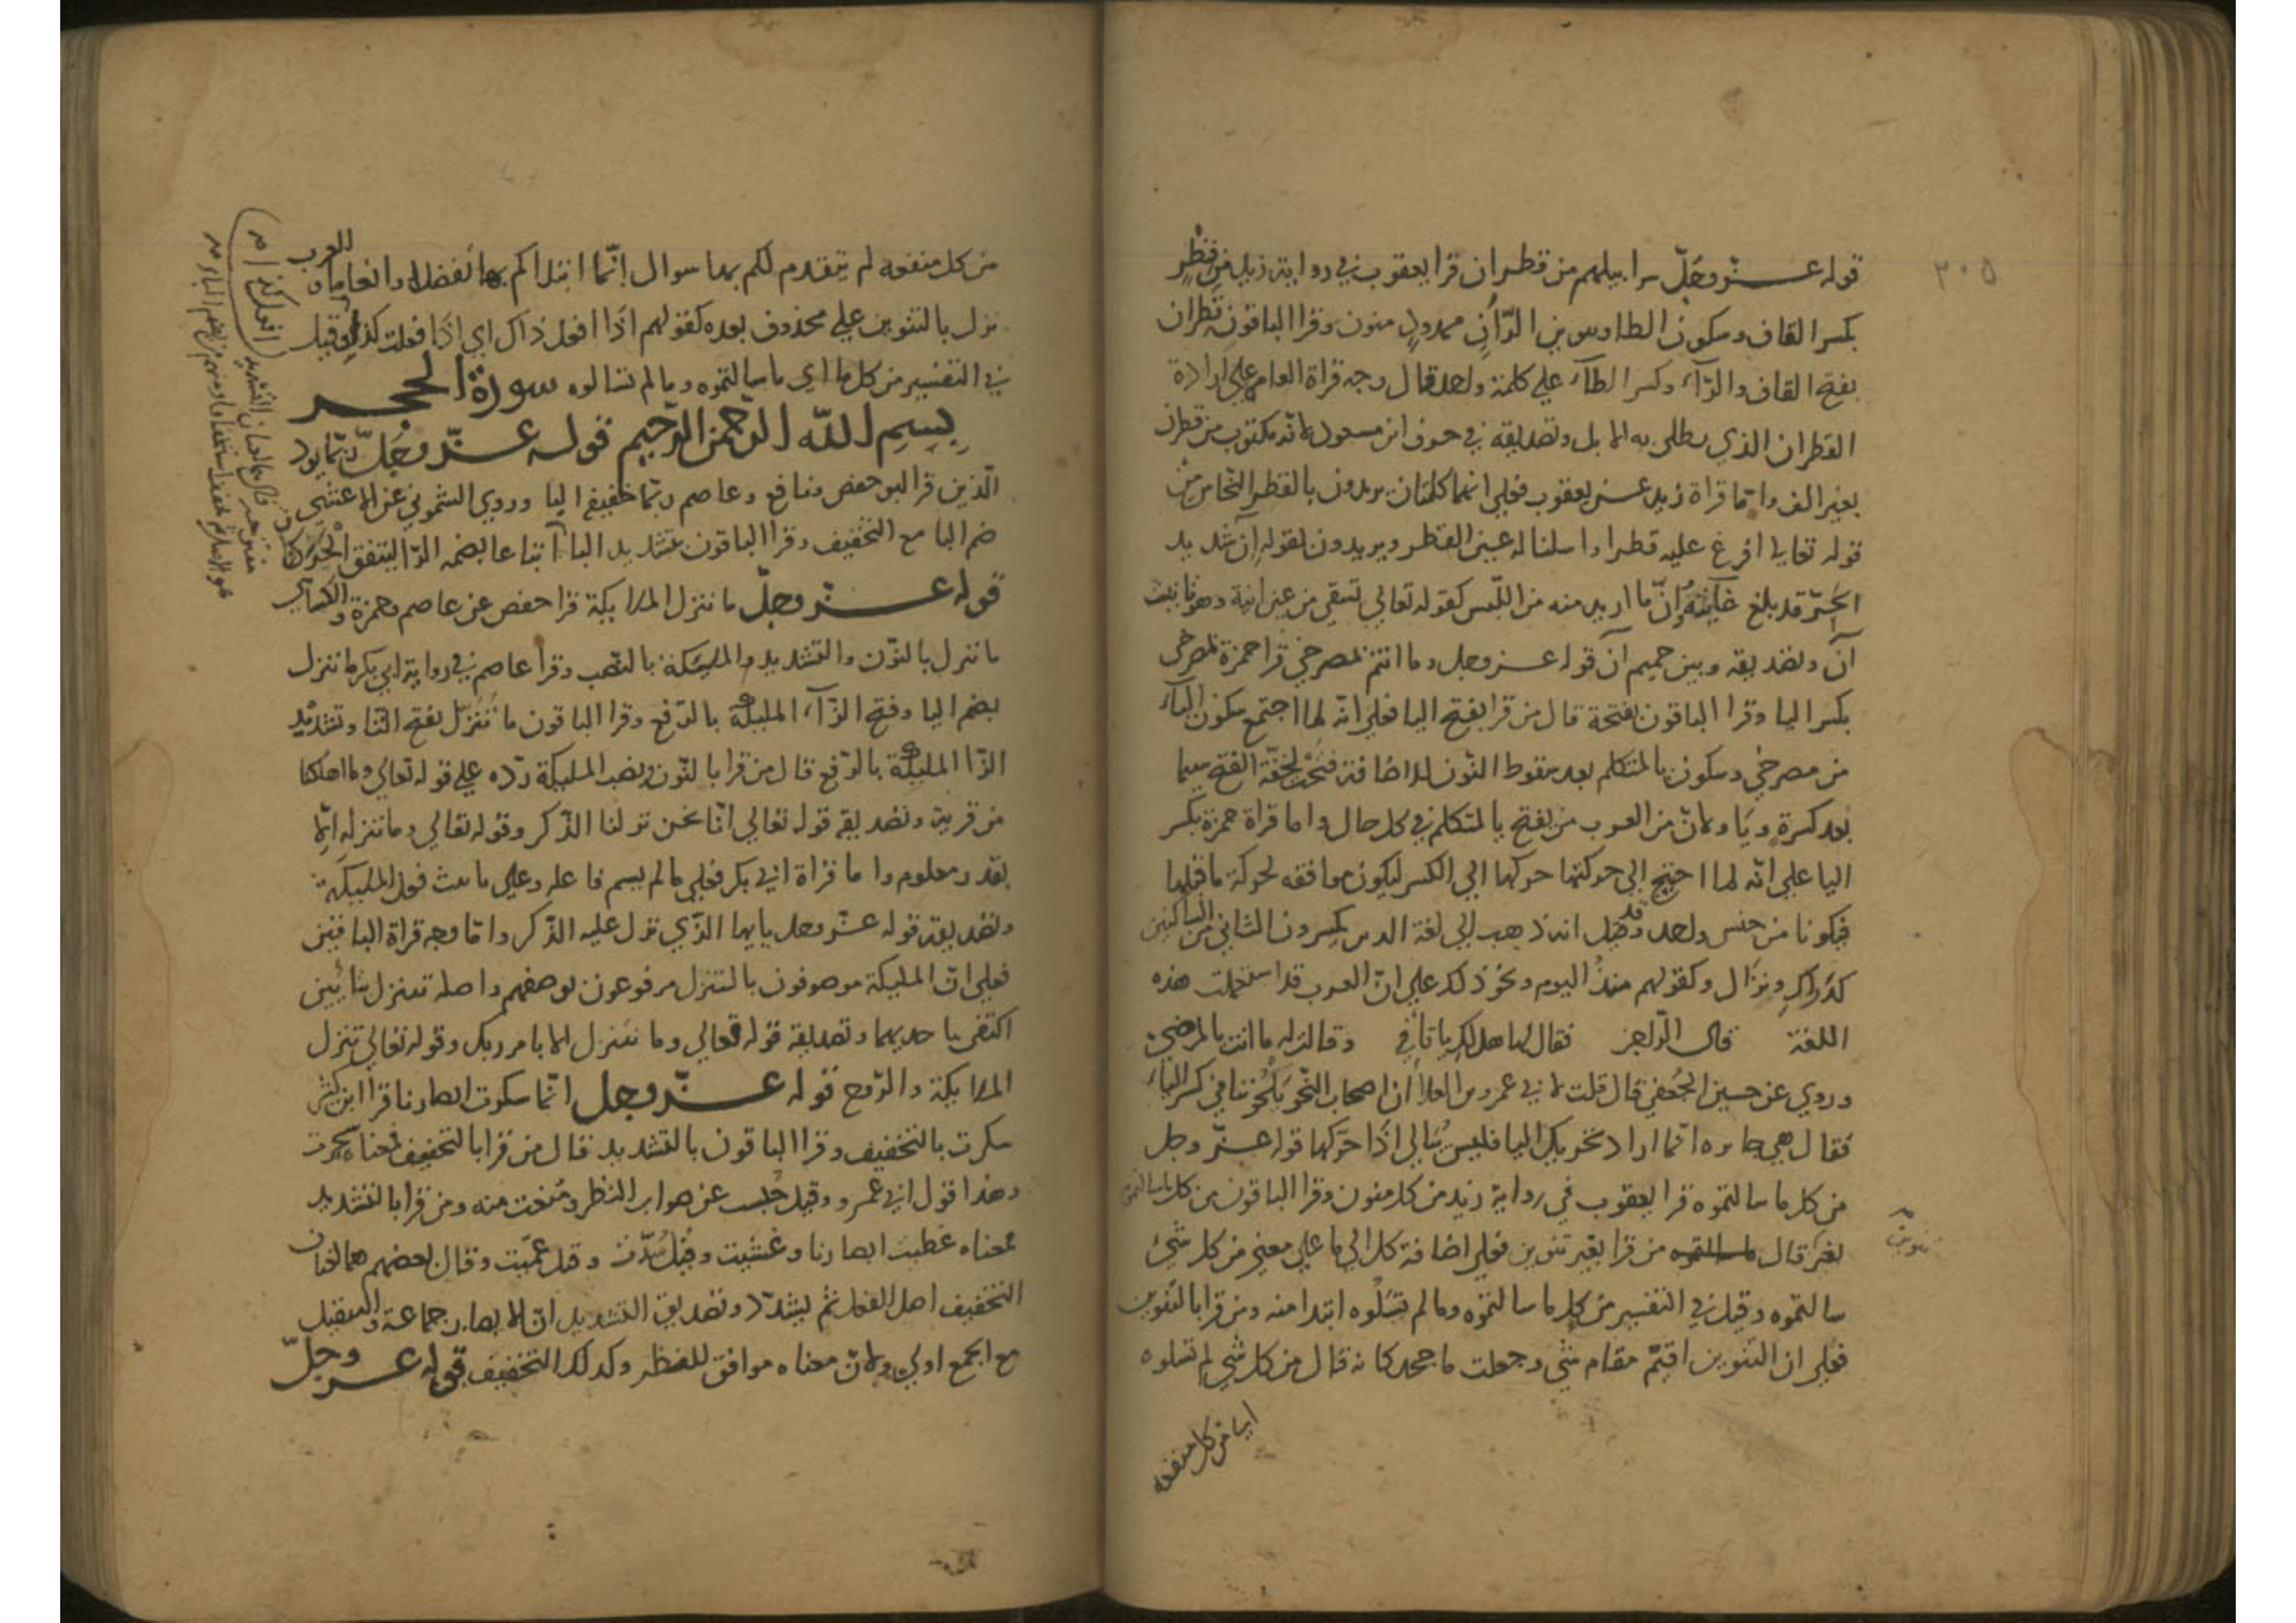 ٣٠٥
قوله عز وجلّ سرابيلهم من قطران قرا يعقوب في رواية زيد من قِطْرٍ
بكسر القاف وسكون الطا وسوين الرّاآنٍ ممدودٍ منون وقرا الباقون قَطران
بفتح القاف والرّآء وكسر الطآء علي كلمة واحدة قال وجه قراة العامه علي ارادة
القطران الذي يطلي به الابل وتصديقه في حرف ابن مسعود لانه مكتوب من قطران
بغير الف واما قراة زيد عن يعقوب فعلي انهما كلمتان يريدون بالقطر النحاس من
قوله تعالي افرغ عليه قطرا واسلنا له عين القطر ويريدون بقوله آن شديد
الحرّ قد بلغ غايته وان ما اريد منه من اللبس كقوله تعالي تسقي من عين انية وهو تانيث
آن وتصديقه وبين حميم آن قوله عز وجل وما انتم بمصرخي قرا حمزة بمصرخي
بكسر اليا وقرا الباقون بفتحة قال من قرا بفتح اليا فعلي انه لما اجتمع سكون اليآء
من مصرخي وسكون يا المتكلم بعد سقوط النون للاضافة فتحت لخفّة الفتح سيما
بعد كسرة ويا ولانّ من العرب من يفتح يا المتكلم في كل حال واما قراة حمزة بكسر
اليا علي انّه لما احتيج الي حركتها حركها الي الكسر ليكون موافقه لحركة ما قبلها
فيكونا من جنس واحد وقد قيل انه ذهب الي لغة الذين يكسرون الثاني من الساكنين
كدراكِ ونزال وكقولهم منذُ اليوم ونحو ذلك علي انّ العرب قد استعملت هذه
اللغة قال الراجز فقال لها هل لكِ يا تا في وقالت له ما انت بالمرضي
وروي عن حسين الجُعفي قال قلت لابي عمرو بن العلا ان اصحاب النحو يلحّنوننا في كسر اليآء
فقال هي جايزه انما اراد تحريك اليا فليس يُبالي اذا حرّكها قوله عزّ وجل
من كل ما سالتموه قرا يعقوب في رواية زيد من كل منون وقرا الباقون من كل ما سالتموه
بغير قال من قرا بغير تنوين فعلي اضافة كل الي ما علي معني من كل شئ
تنوين
سالتموه وقيل في التفسير من كل ما سالتموه وما لم تسلُوه ابتدا منه ومن قرا بالتنوين
فعلي ان التنوين اقيمَ مقام شي وجعلت ما جحد كانه قال من كل شي لم تسلوه
ايا من كل منفعه
من كل منفعه لم يتقدم لكم بها سوال انّما ابتداكم بها تفضلا وانعاما و العرب
نزل بالتنوين علي محذوف بعده كقولهم اذًا افعل ذاك اي اذا فعلت كذا وقيل
في التفسير من كل ما اي ما سالتموه وما لم تسالوه سورة الحجر
بسم الله الرّحمن الرّحيم قوله عزّ وجَلّ ربّما يودّ
الّذين قرا ابو حفص ونافع وعاصم ربما خفيف اليا وروي الشموني عن الاعشي
ضم البا مع التخفيف وقرا الباقون بتشديد البا اتباعا بضمه الرّا ليتفق الحركتان
قوله عز وجلّ ما ننزل الملايكة قرا حفص عن عاصم وحمزة والكساي
ما ننزل بالنّون والتشديد والمليكة بالنصب وقرا عاصم في رواية ابي بكر ما تنزل
بضم اليا وفتح الزّآء المليكة بالرّفع وقرا الباقون ما تَنَزّل بفتح التا وتشديد
الزّا المليكة بالرّفع قال من قرا بالنّون ونصب المليكة ردّه علي قوله تعالي وما اهلكنا
من قرية وتصديقه قوله تعالي انّا نحن نزلنا الذّكر وقوله تعالي وما ننزله الّا
بقدر معلوم واما قراة ابي بكر فعلي ما لم يسم فاعله وعلي تانيث فعل المليكة
وتصديقه قوله عزّ وجل يا يها الذّي نزل عليه الذّكر وامّا وجه قراة الباقين
فعلي انّ المليكة موصوفون بالتنزل مرفوعون بوصفهم واصله تتنزل بتائين
اكتفي باحديهما وتصديقه قوله تعالي وما نتنزل الا بامر ربك وقوله تعالي تنزل
الملايكة والرّوح قوله عزّ وجل انّما سكرت ابصارنا قرا ابن كثير
سكرت بالتخفيف وقرا الباقون بالتشديد قال من قرا بالتخفيف فمعناه سحرت
وهذا قول ابي عمرو وقيل حُبست عن صواب النظر ومُنعت منه ومن قرا بالتشديد
فمعناه غطيت ابصارنا وغشيت وقيل سُدّت وقيل عميّت وقال بعضهم هما لغتان
التخفيف اصل الفعل ثم يشدّد وتصديق التشديد انّ الابصار جماعة والتثقيل
مع الجمع اولي ولانّ معناه موافق للفظه وكذلك التخفيف قوله عز وجلّ